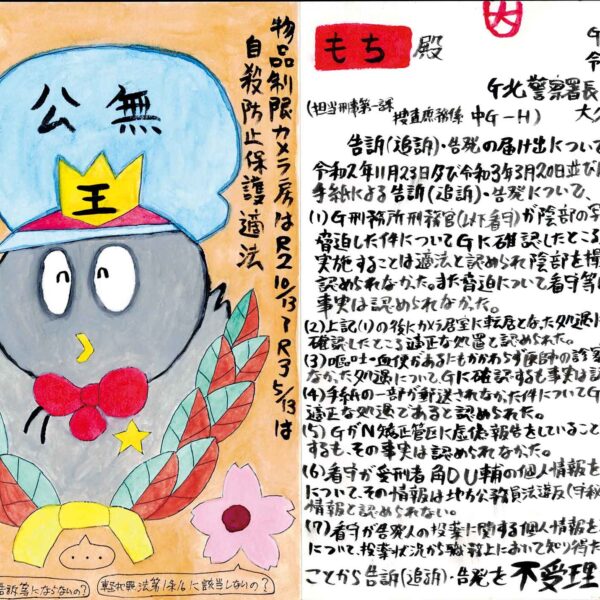 公無
王
物品制限カメラ房はR2 10/13〜R3 5/13は
自殺防止保護適法
…
にならないの?
軽犯罪法第1条16に該当しないの?
大
もち殿
G
令
G北警察署長
(担当刑事第一課
捜査庶務係 中G-H)
大
告訴(追訴)・告発の届け出について
令和2年11月23日及び令和3年3月20日並び
手紙による告訴(追訴)・告発について、
(1)G刑務所刑務官(以下看守)が陰部の
脅迫した件についてGに確認したところ
実施することは適法と認められ陰部を
認められなかった。また脅迫について看守等
事実は認められなかった。
(2)上記(1)の後にカメラ居室に転居となった処遇
確認したところ適正な処置と認められた。
(3)嘔吐・血便があるにもかかわらず医師の診察
なかった処遇についてGに確認するも事実は認
(4)手紙の一部が郵送されなかった件についてG
適正な処遇であると認められた。
(5)GがN矯正管区に虚偽報告をしていること
するも、その事実は認められなかった。
(6)看守が受刑者角DU輔の個人情報を
について、その情報は地方公務員法違反(守秘
情報と認められない。
(7)看守が告発人の投薬に関する個人情報を
について、投薬状況から職務上において知り得た
ことから告訴(追訴)・告発を不受理